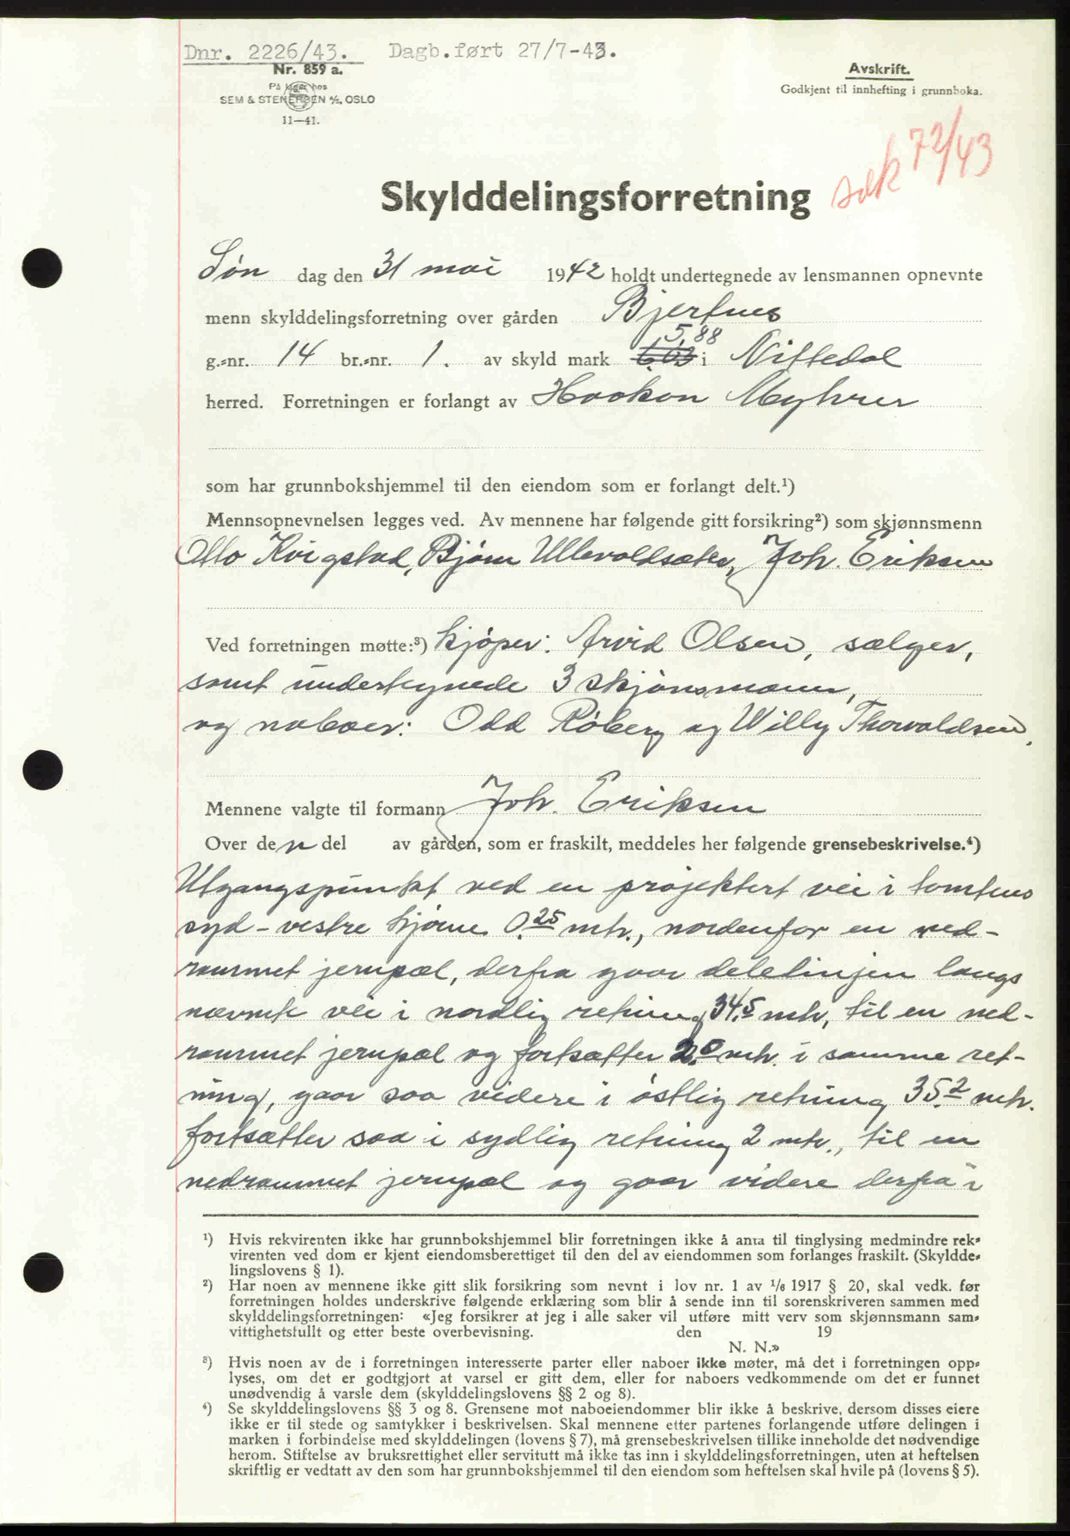 Dnr. 2226/43. Dagb.ført 27/7-43.
Nr. 859 a.
På lager hos
SEM & STENERSEN A/S, OSLO
11—41.
Avskrift.
Godkjent til innhefting i grunnboka.
sak 72/43
Skylddelingsforretning
Søn dag den 31 mai 1942 holdt undertegnede av lensmannen opnevnte
menn skylddelingsforretning over gården Bjertnes
5,88
g.-nr. 14 br.-nr. 1. av skyld mark 6,03 i Nittedal
herred. Forretningen er forlangt av Haakon Myhrer
som har grunnbokshjemmel til den eiendom som er forlangt delt.¹)
Mennsopnevnelsen legges ved. Av mennene har følgende gitt forsikring²) som skjønnsmenn
Otto Kvigstad, Bjørn Ullevoldsæter, Joh. Eriksen
Ved forretningen møtte:³) kjøper: Arvid Olsen, sælger,
samt undertegnede 3 skjønsmænn,
og naboer: Odd Røberg og Willy Thorvaldsen.
Mennene valgte til formann Joh. Eriksen
Over den del av gården, som er fraskilt, meddeles her følgende grensebeskrivelse.⁴)
Utgangspunkt ved en projektert vei i tomtens
syd-vestre hjørne 0.25 mtr., nordenfor en ned-
rammet jernpæl, derfra gaar delelinjen langs
nævnte vei i nordlig retning 34,5 mtr, til en ned-
rammet jernpæl og fortsætter 2.0 mtr. i samme ret-
ning, gaar saa videre i østlig retning 35.2 mtr.
fortsætter saa i sydlig retning 2 mtr., til en
nedrammet jernpæl og gaar videre derfra i
¹) Hvis rekvirenten ikke har grunnbokshjemmel blir forretningen ikke å anta til tinglysing medmindre rek-
virenten ved dom er kjent eiendomsberettiget til den del av eiendommen som forlanges fraskilt. (Skyldde-
lingslovens § 1).
²) Har noen av mennene ikke gitt slik forsikring som nevnt i lov nr. 1 av 1/6 1917 § 20, skal vedk. før
forretningen holdes underskrive følgende erklæring som blir å sende inn til sorenskriveren sammen med
skylddelingsforretningen: «Jeg forsikrer at jeg i alle saker vil utføre mitt verv som skjønnsmann sam-
vittighetsfullt og etter beste overbevisning. den 19
N. N.»
³) Hvis noen av de i forretningen interesserte parter eller naboer ikke møter, må det i forretningen opp-
lyses, om det er godtgjort at varsel er gitt dem, eller for naboers vedkommende om det er funnet
unødvendig å varsle dem (skylddelingslovens §§ 2 og 8).
⁴) Se skylddelingslovens §§ 3 og 8. Grensene mot naboeiendommer blir ikke å beskrive, dersom disses eiere
ikke er til stede og samtykker i beskrivelsen. Skal mennene etter partenes forlangende utføre delingen i
marken i forbindelse med skylddelingen (lovens § 7), må grensebeskrivelsen tillike inneholde det nødvendige
herom. Stiftelse av bruksrettighet eller servitutt må ikke tas inn i skylddelingsforretningen, uten at heftelsen
skriftlig er vedtatt av den som har grunnbokshjemmel til den eiendom som heftelsen skal hvile på (lovens § 5).